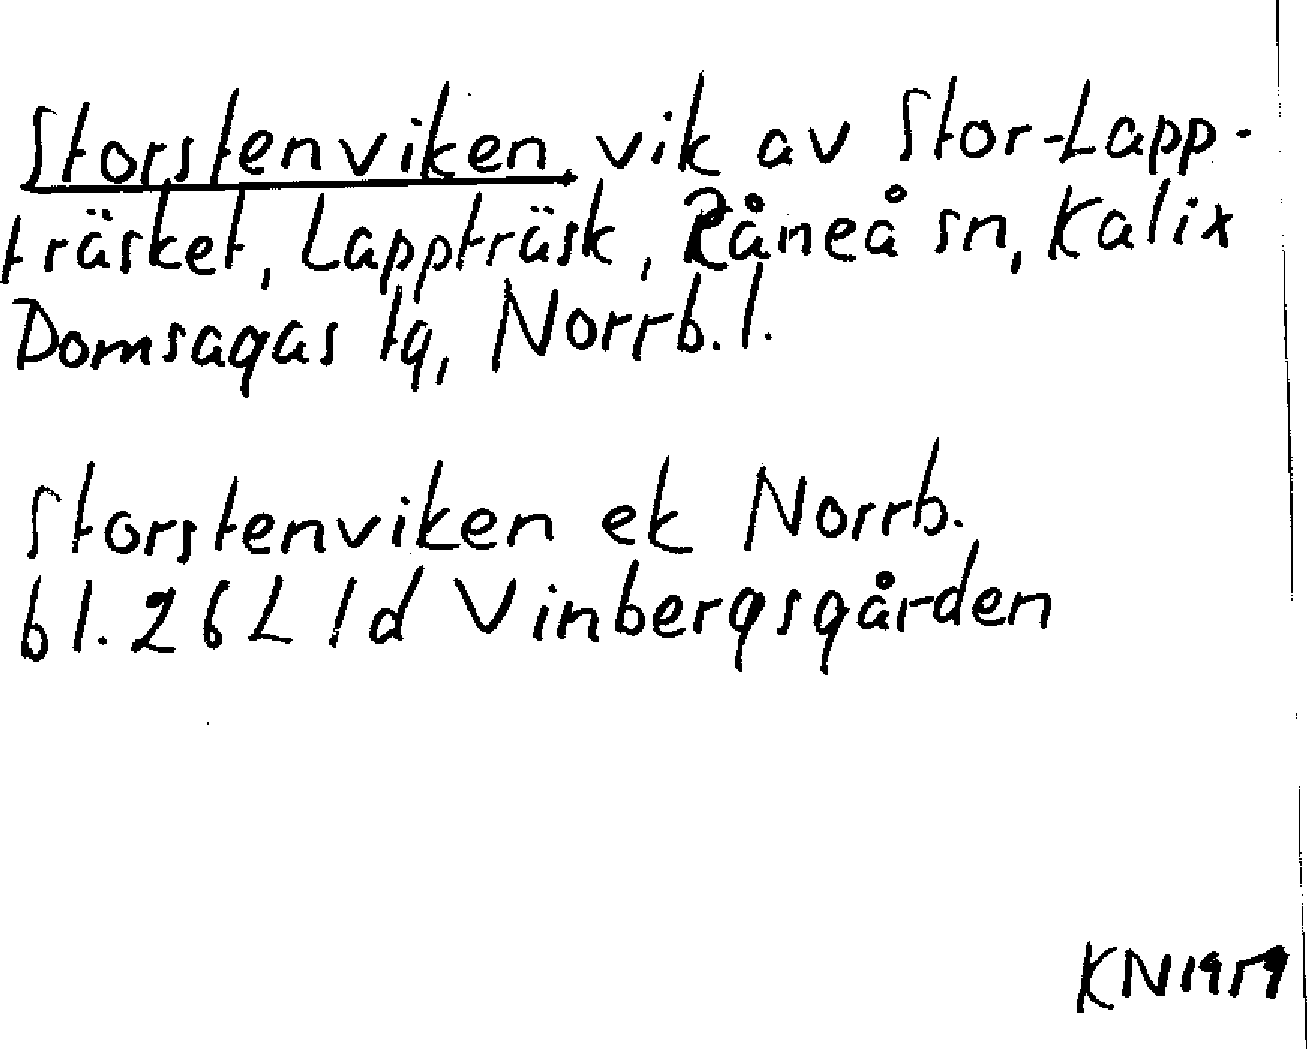 Storstenviken, vik av Stor-Lapp-
träsket, Lappträsk, Råneå sn, Kalix
Domsagas tg, Norrb. l.
Storstenviken ek Norrb.
bl. 26 L 1d Vinbergsgården
KN 1959